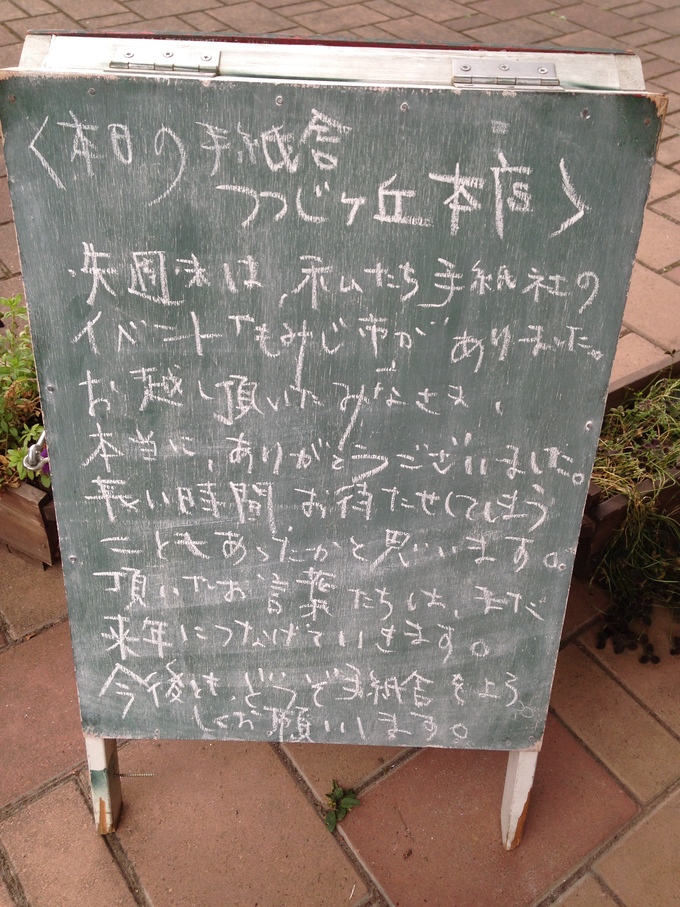 〈本日の手紙舎
つつじヶ丘本店〉
先週末は、私たち手紙社の
イベント「もみじ市」がありました。
お越し頂いたみなさま、
本当に、ありがとうございました。
長い時間、お待たせしてしまう
こともあったかと思いいます。
頂いたお言葉たちは、また
来年につなげていきます。
今後とも、どうぞ手紙舎をよろ
しくお願いします。